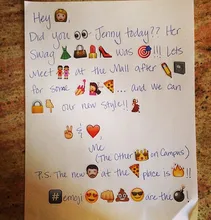 Hey 👩
Did you 👀 Jenny today?? Her
Swag 👗👛👠💄 was 🎯!!! Lets
Meet at the Mall after
for some 🍕... and we can
🔒👇 our new style!!
✌️ & ❤️
Me
(The Other 👑 on Campus)
P.S. The new 🧔 at the 🍕 place is 🔥!!
#️⃣ emoji 😄👊💩😎 are the 💣!